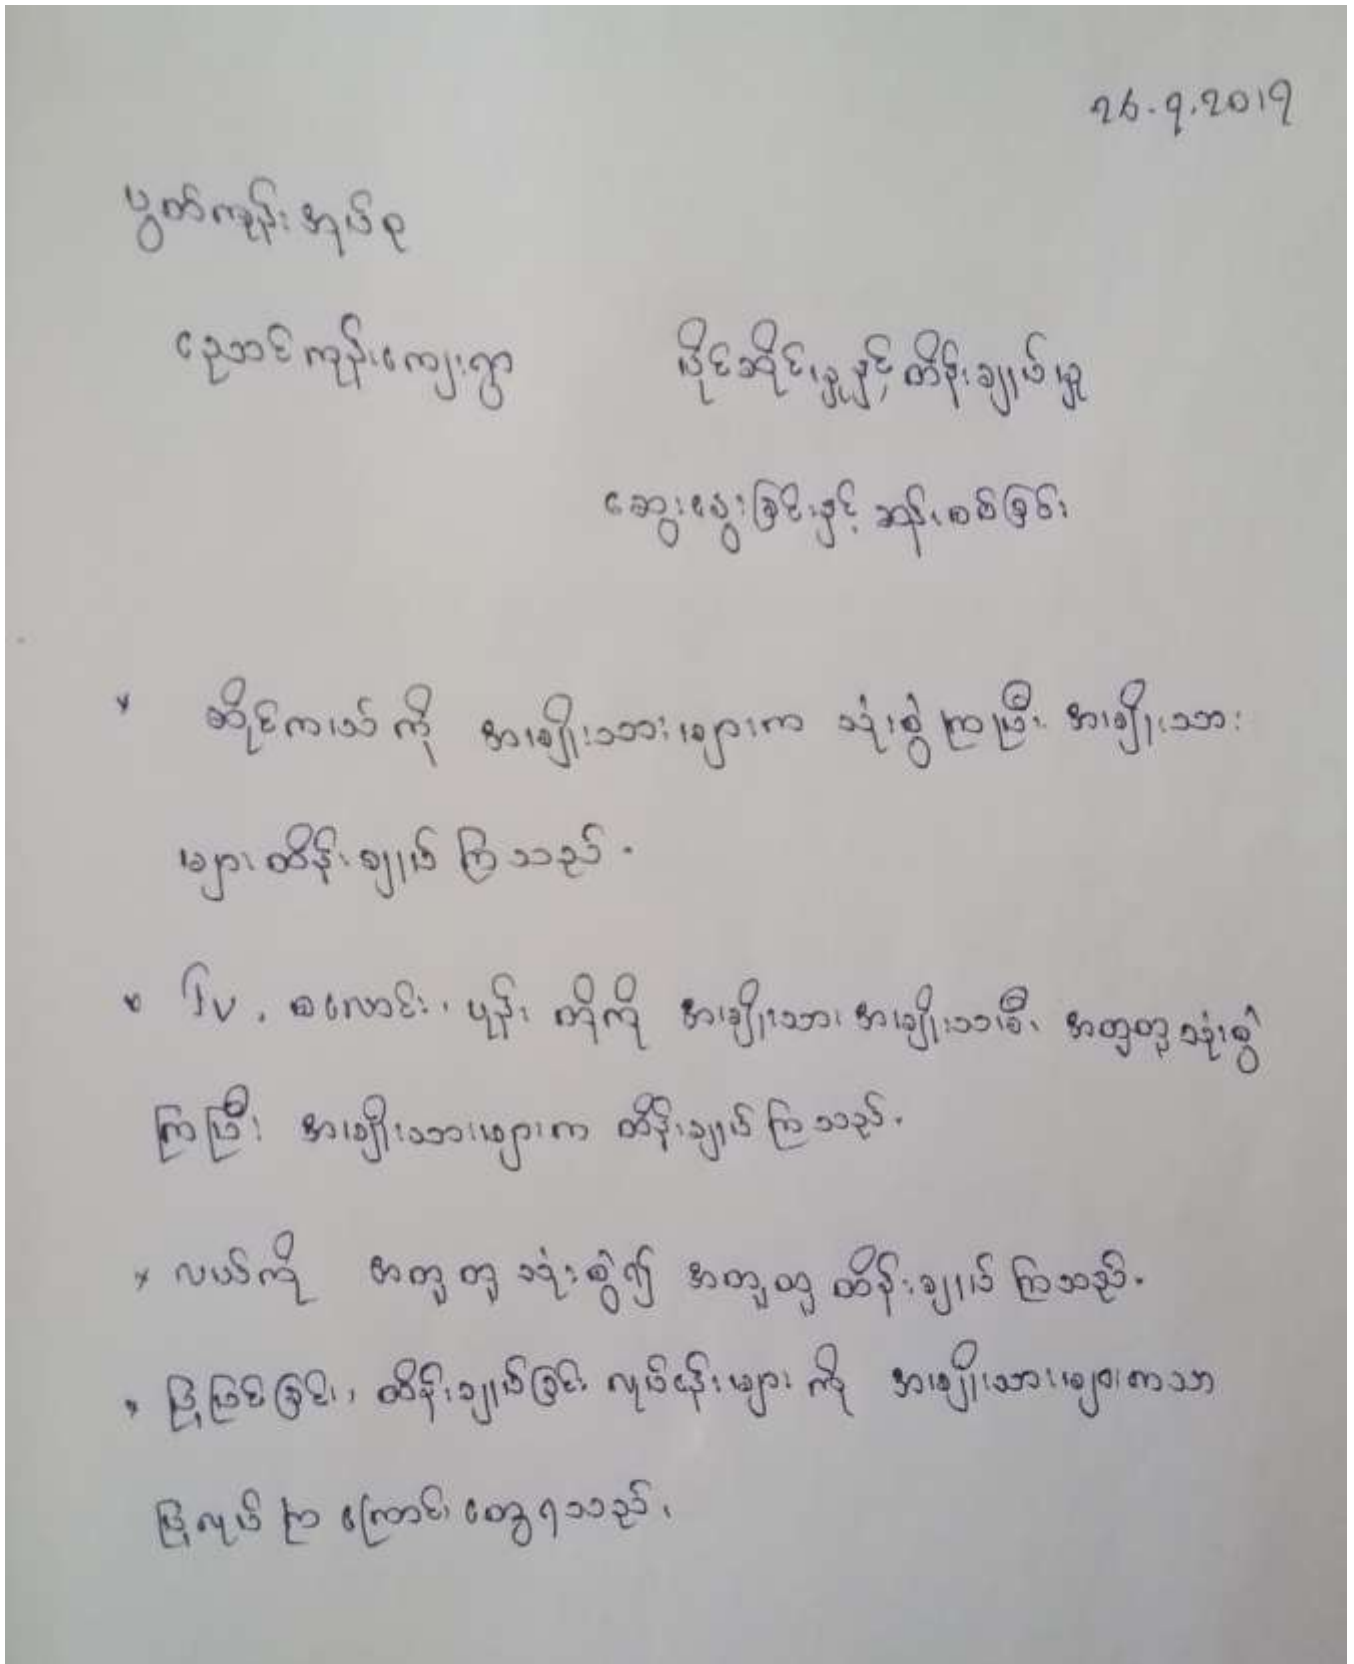 26.9.2019
ပွတ်ကုန်းအုပ်စု
ညောင်ကုန်းကျေးရွာ ပိုင်ဆိုင်မှုနှင့် ထိန်းချုပ်မှု
ဆွေးနွေးခြင်းနှင့် ဆန်းစစ်ခြင်း
* ဆိုင်ကယ်ကို အမျိုးသားများက သုံးစွဲကြပြီး အမျိုးသား
များထိန်းချုပ်ကြသည်.
* TV, စလောင်း, ဖုန်း တို့ကို အမျိုးသားအမျိုးသမီး အတူတူသုံးစွဲ
ကြပြီး အမျိုးသားများက ထိန်းချုပ်ကြသည်.
* လယ်ကို အတူတူသုံးစွဲ၍ အတူတူထိန်းချုပ်ကြသည်.
* ပြုပြင်ခြင်း, ထိန်းချုပ်ခြင်း လုပ်ငန်းများကို အမျိုးသားများကသာ
ပြုလုပ်ကြကြောင်း တွေ့ရသည်.